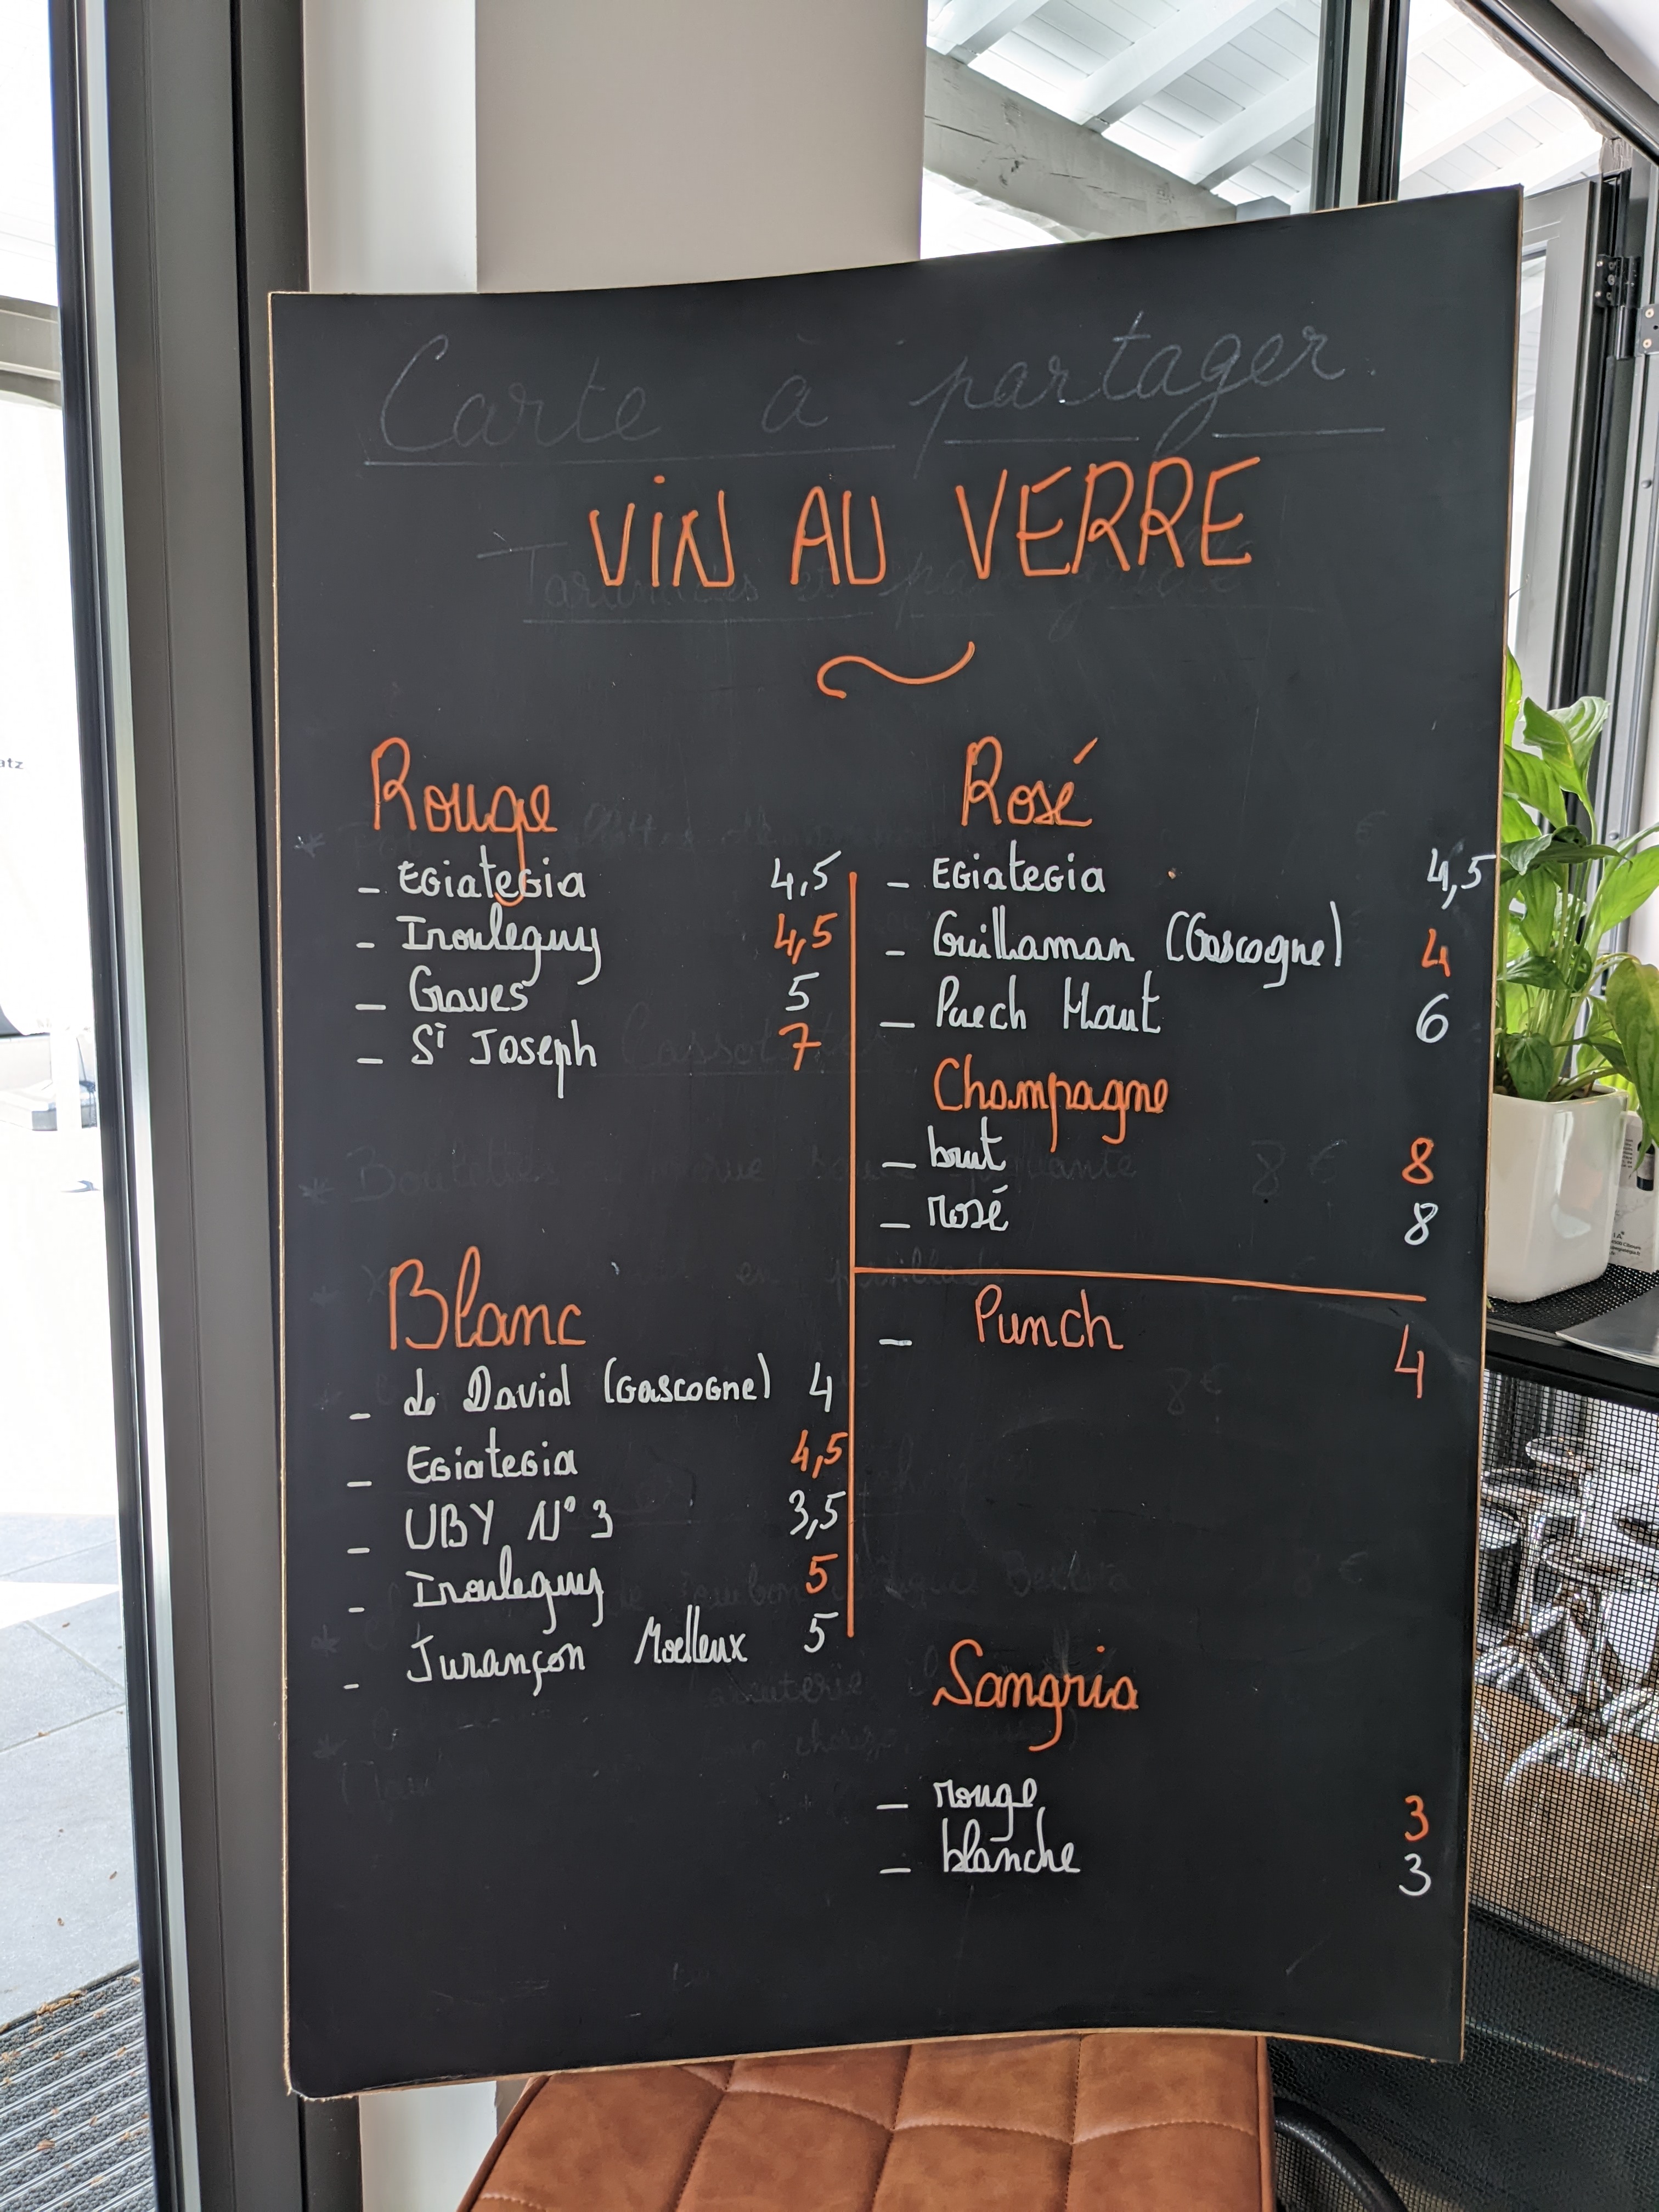 Carte à partager
VIN AU VERRE
Rouge
- Egiategia 4,5
- Irouleguy 4,5
- Graves 5
- St Joseph 7
Blanc
- de David (Gascogne) 4
- Egiategia 4,5
- UBY N°3 3,5
- Irouleguy 5
- Jurançon Moelleux 5
Rosé
- Egiategia 4,5
- Guillaman (Gascogne) 4
- Puech Haut 6
Champagne
- brut 8
- rosé 8
- Punch 4
Sangria
- rouge 3
- blanche 3
8 €
8 €
8 €
atz